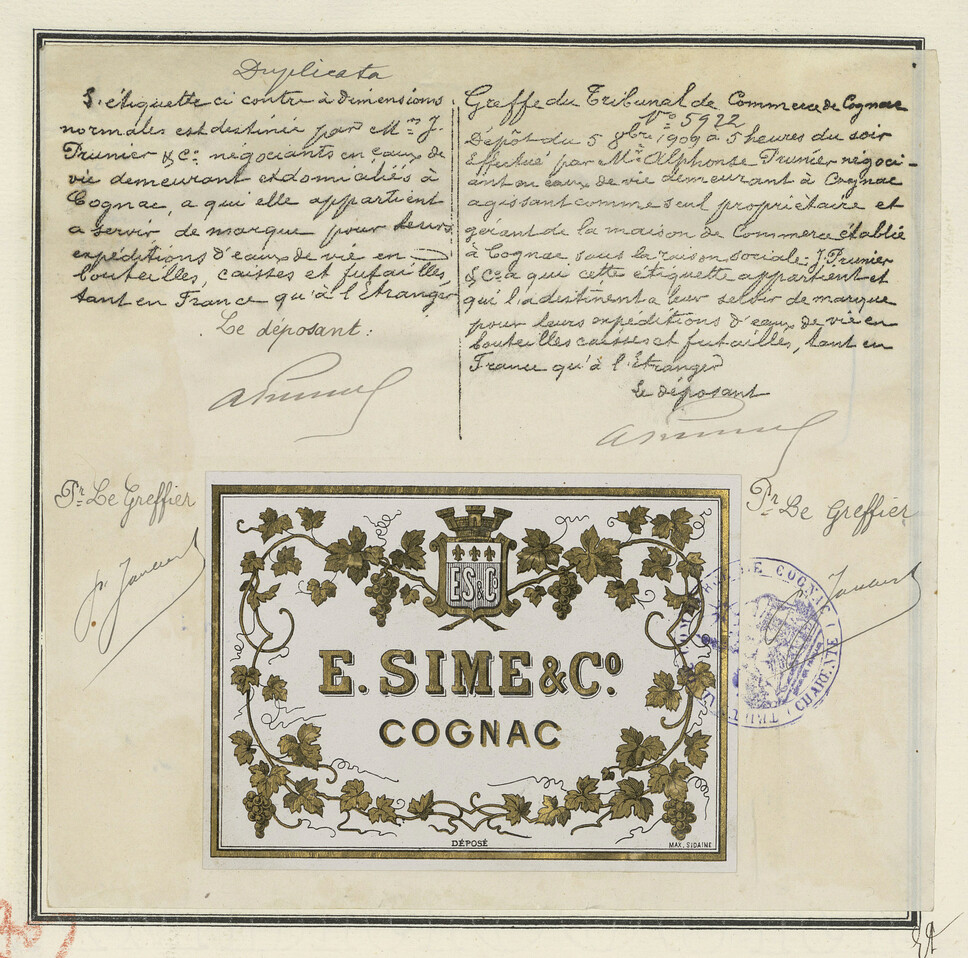 Duplicata
L'étiquette ci contre à dimensions
normales est destinée par M.rs J.
Prunier & Co. négociants en eaux de
vie demeurant et domiciliés à
Cognac, a qui elle appartient
a servir de marque pour leurs
expéditions d'eaux de vie en
bouteilles, caisses et futailles,
tant en France qu'à l'étranger
Le déposant:
Greffe du Tribunal de Commerce de Cognac
No 5922
Dépôt du 5 8bre 1909 à 5 heures du soir
Effectué par Mr. Alphonse Prunier négoci-
ant en eaux de vie demeurant à Cognac
agissant comme seul propriétaire et
gérant de la maison de Commerce établie
à Cognac sous la raison sociale: J. Prunier
& Co a qui cette étiquette appartient et
qui l'a destinent a leur servir de marque
pour leurs expéditions d'eaux de vie en
bouteilles caisses et futailles, tant en
France qu'à l'Etranger
Le déposant
Pr Le Greffier
Pr Le Greffier
ES&Co
E. SIME & Co.
COGNAC
DÉPOSÉ
MAX. SIDAINE
DE COGNAC
CHARENTE